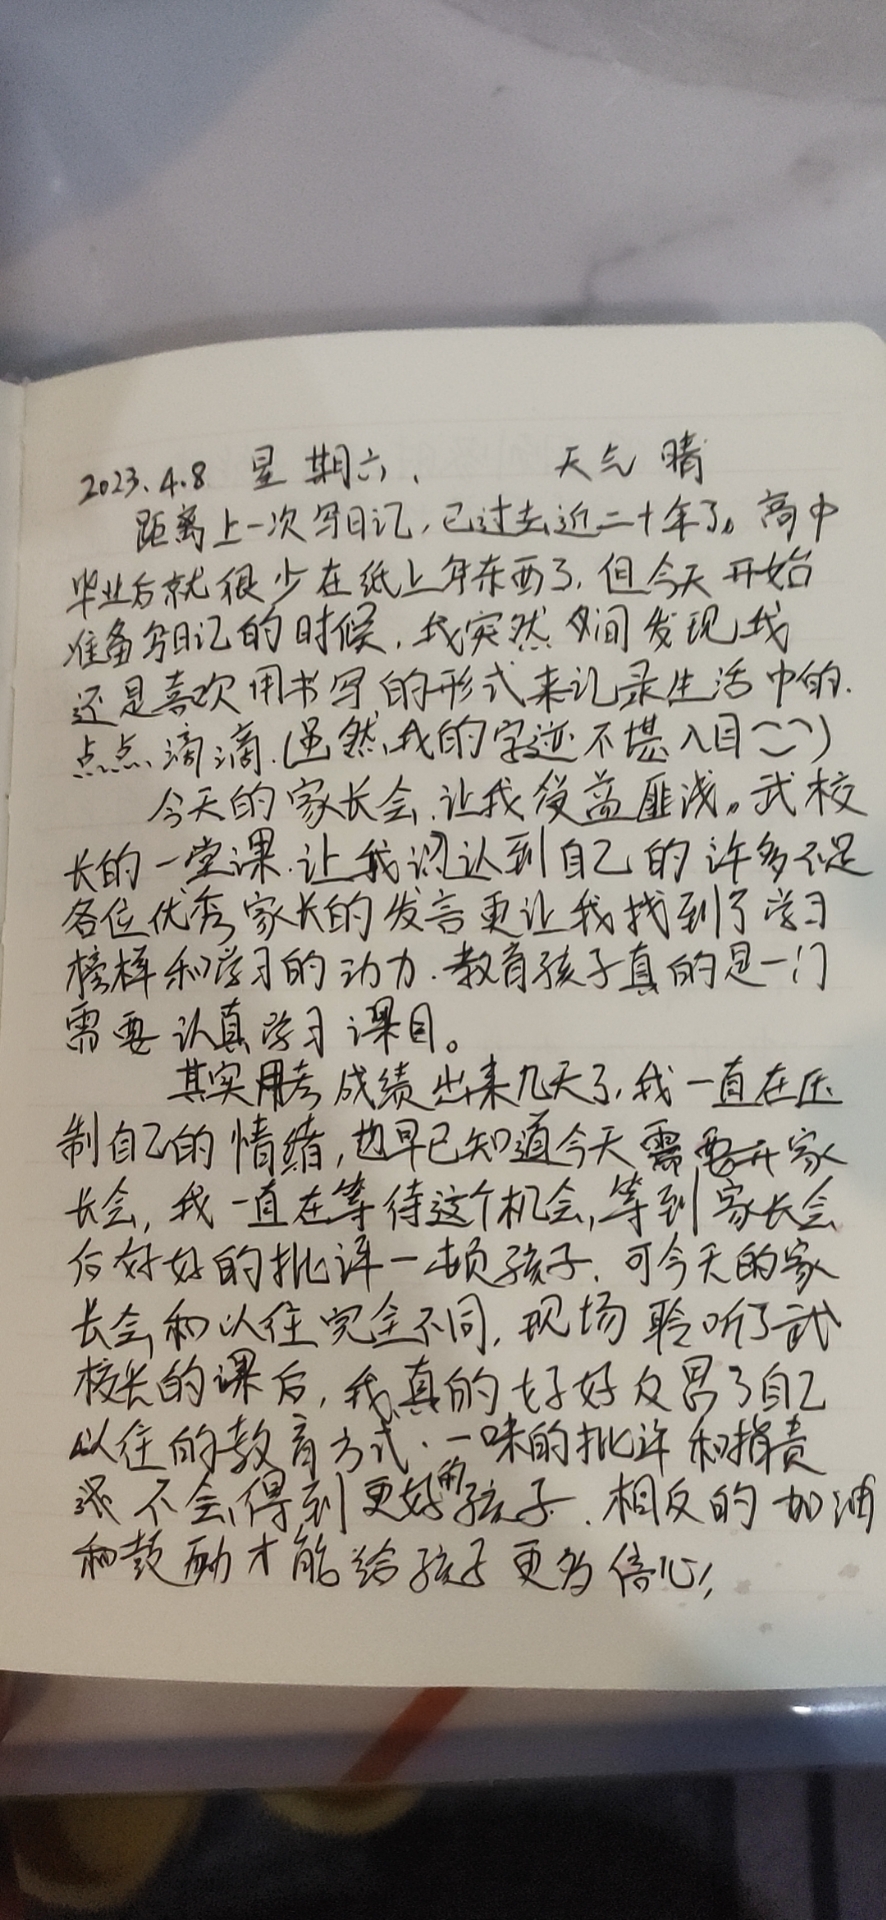 2023.4.8 星期六. 天气 晴
距离上一次写日记,已过去近二十年了。高中
毕业后就很少在纸上写东西了,但今天开始
准备写日记的时候,我突然间发现我
还是喜欢用书写的形式来记录生活中的.
点点滴滴.(虽然,我的字迹不堪入目
今天的家长会.让我受益匪浅。武校
长的一堂课.让我认到自己的许多不足
各位优秀家长的发言更让我找到了学习
榜样和学习的动力.教育孩子真的是一门
需要认真学习课目。
其实月考成绩出来几天了,我一直在压
制自己的情绪,也早已知道今天需要开家
长会,我一直在等待这个机会,等到家长会
后好好的批评一顿孩子.可今天的家
长会,和以往完全不同,现场聆听了武
校长的课后,我真的好好反思了自己
以往的教育方式.一味的批评和指责
不会得到更好的孩子.相反的加油
和鼓励才能给孩子更多信心!